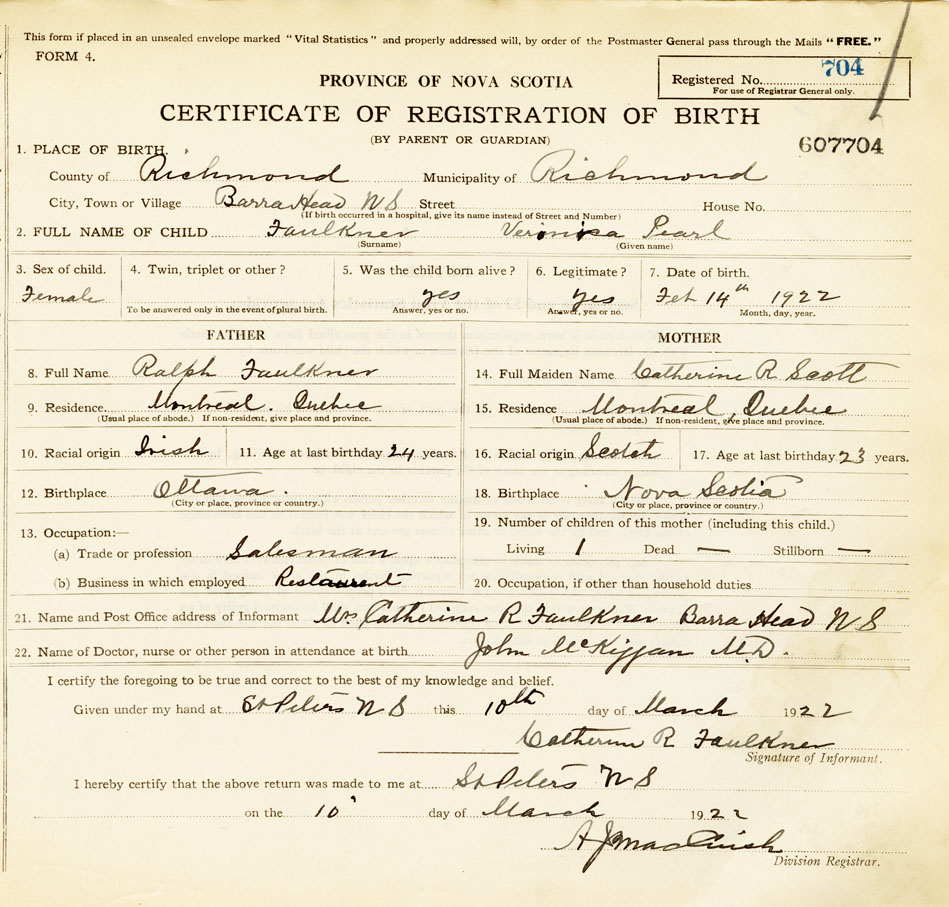 This form if placed in an unsealed envelope marked "Vital Statistics" and properly addressed will, by order of the Postmaster General pass through the Mails "FREE."
FORM 4.
Registered No. 704
For use of Registrar General only.
PROVINCE OF NOVA SCOTIA
CERTIFICATE OF REGISTRATION OF BIRTH
(BY PARENT OR GUARDIAN)
607704
1. PLACE OF BIRTH.
County of Richmond Municipality of Richmond
City, Town or Village Barra Head N S Street House No.
(If birth occurred in a hospital, give its name instead of Street and Number)
2. FULL NAME OF CHILD Faulkner Veronica Pearl
(Surname) (Given name)
3. Sex of child. 4. Twin, triplet or other? 5. Was the child born alive? 6. Legitimate? 7. Date of birth.
Female yes yes Feb 14th 1922
To be answered only in the event of plural birth. Answer, yes or no. Answer, yes or no. Month, day, year.
FATHER MOTHER
8. Full Name Ralph Faulkner 14. Full Maiden Name Catherine R Scott
9. Residence. Montreal. Quebec 15. Residence Montreal, Quebec
(Usual place of abode.) If non-resident, give place and province. (Usual place of abode.) If non-resident, give place and province.
10. Racial origin Irish 11. Age at last birthday 24 years. 16. Racial origin Scotch 17. Age at last birthday 23 years.
12. Birthplace Ottawa. 18. Birthplace Nova Scotia
(City or place, province or country.) (City or place, province or country.)
13. Occupation:— 19. Number of children of this mother (including this child.)
(a) Trade or profession Salesman Living 1 Dead — Stillborn —
(b) Business in which employed Restaurent 20. Occupation, if other than household duties
21. Name and Post Office address of Informant Mrs Catherine R Faulkner Barra Head N S
22. Name of Doctor, nurse or other person in attendance at birth John McKiggan M.D.
I certify the foregoing to be true and correct to the best of my knowledge and belief.
Given under my hand at St Peters N S this 10th day of March 1922
Catherine R Faulkner
Signature of Informant.
I hereby certify that the above return was made to me at St Peters N S
on the 10 day of March 1922
A J
Division Registrar.